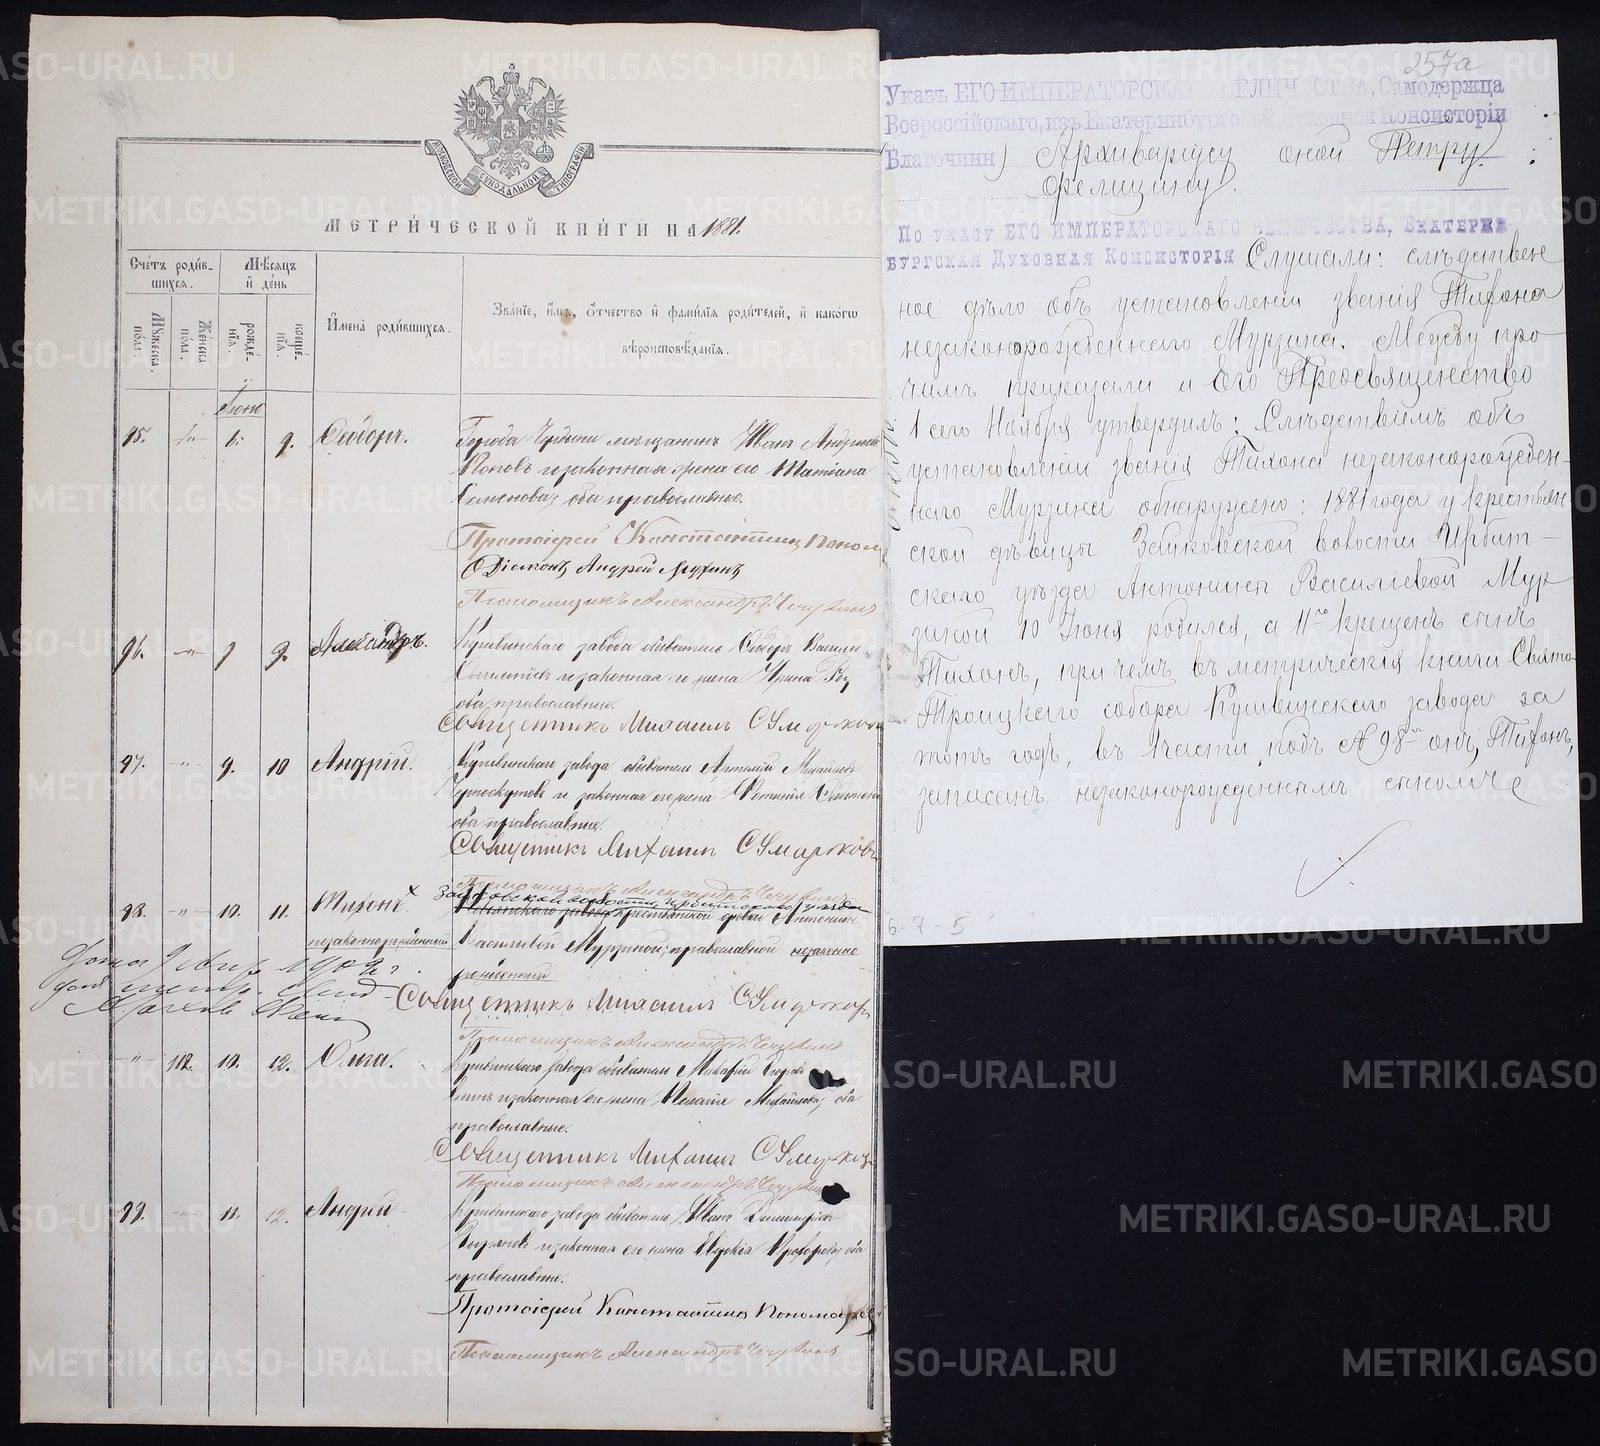 МОСКОВСКОЙ СѴНОДАЛЬНОЙ ТИПОГРАФІИ
МЕТРИ́ЧЕСКОЙ КНИ́ГИ НА 1881.
Счетъ роди́в-
шихся.
Му́жеска
по́ла.
Же́нска
по́ла.
Мѣ́сяцъ
и҆ де́нь
рожде́-
нїѧ.
креще́-
нїѧ.
И҆мена̀ роди́вшихся.
Зва́нїе, и҆́мѧ, ѻ҆́тчество и҆ фами́лїѧ роди́телей, и҆ како́гѡ
вѣроисповѣ́данїѧ.
Іюнь
95. -"- 1. 9. Ѳеодоръ.
Города Чердыни мѣщанинъ Иванъ Андреевъ
Поповъ и законная жена его Татіана
Семенова, оба православные.
Протоіерей Константинъ Поном
Діаконъ Андрей Мухинъ
Псаломщикъ Александръ
96. -"- 7 9. Александръ.
Кушвинскаго завода обыватель Ѳеодоръ
и законная его жена Ирина
оба православные.
Священникъ Михаилъ
97. -"- 9. 10 Андрей.
Кушвинскаго завода обыватель Артемій Михайловъ
и законная его жена
оба православные.
Священникъ Михаилъ
Псаломщикъ Александръ
98. -"- 10. 11. Тихонъ x
незаконнорожденный
Зайковской волости, Ирбитскаго уѣзда
крестьянской дѣвки Антонины
Васильевой Мурзиной, православной незаконно
рожденный
Священникъ Михаилъ
Псаломщикъ Александръ
1902 г.
-"- 102. 10. 12. Ольга.
Кушвинскаго завода обыватель Макарій
и законная его жена Пелагія Михайлова, оба
православные.
Священникъ Михаилъ
Псаломщикъ Александръ
99. -"- 11. 12. Андрей
Кушвинскаго завода обыватель Иванъ Димитріевъ
и законная его жена Евдокія Прохорова, оба
православные.
Протоіерей Константинъ Пономаревъ
Псаломщикъ Александръ
257а
Указъ ЕГО ИМПЕРАТОРСКАГО ВЕЛИЧЕСТВА, Самодержца
Всероссійскаго, изъ Екатеринбургской Духовной Консисторіи
Благочинн) Архиваріусу оной Петру
Фелицину.
По указу ЕГО ИМПЕРАТОРСКАГО ВЕЛИЧЕСТВА, Екатерин-
бургская Духовная Консисторія Слушали: слѣдствен
ное дѣло объ установленіи званія Тихона
незаконорожденнаго Мурзина. Между про
чимъ приказали и Его Преосвященство
1 сего Ноября утвердилъ: Слѣдствіемъ объ
установленіи званія Тихона незаконорожден-
наго Мурзина обнаружено: 1881 года у крестьян
ской дѣвицы Зайковской волости Ирбит-
скаго уѣзда Антонины Васильевой Мур
зиной 10 Іюня родился, а 11го крещенъ сынъ
Тихонъ, при чемъ въ метрическія книги Свято-
Троицкаго собора Кушвинскаго завода за
тотъ годъ, въ I части, подъ № 98 онъ, Тихонъ,
записанъ незаконорожденнымъ сыномъ
6-7-5
METRIKI.GASO-URAL.RU